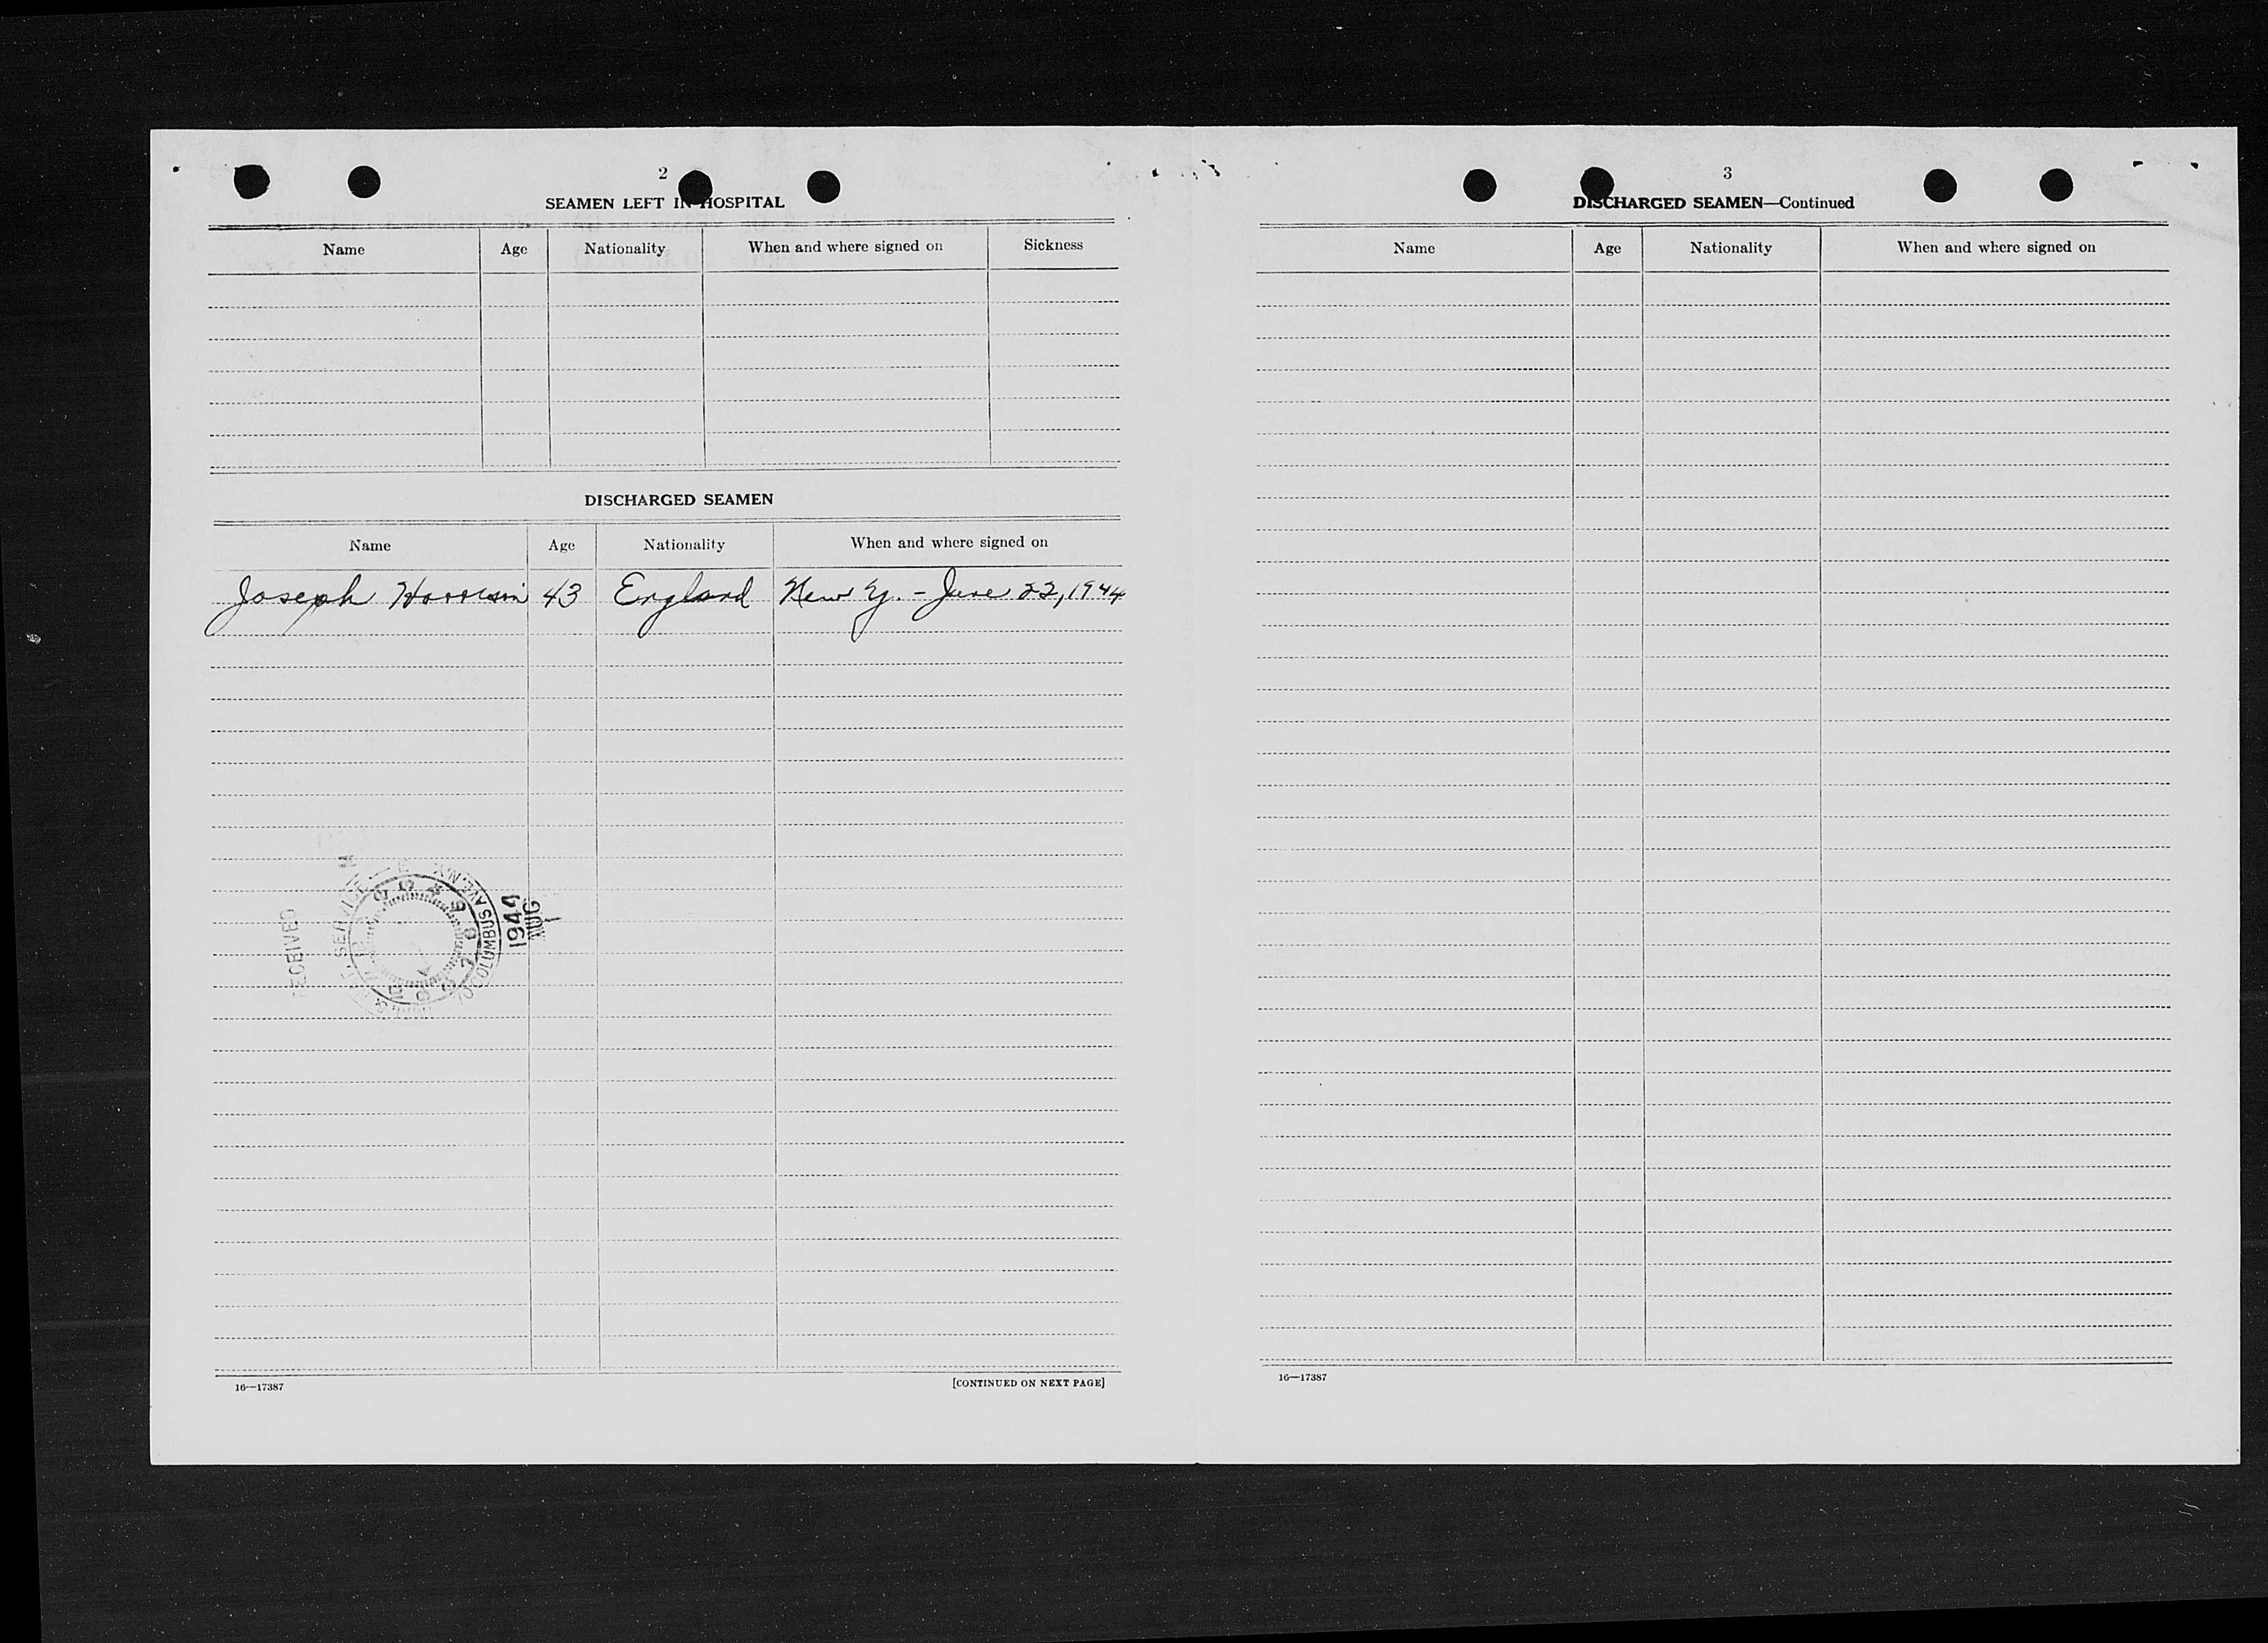 2
SEAMEN LEFT IN HOSPITAL
Name Age Nationality When and where signed on Sickness
DISCHARGED SEAMEN
Name Age Nationality When and where signed on
Joseph Harrison 43 England New Y. - June 22, 1944
RECEIVED
SERVICE
COLUMBUS AVE. N.Y.
1944
AUG 1
16—17387
[CONTINUED ON NEXT PAGE]
3
DISCHARGED SEAMEN—Continued
Name Age Nationality When and where signed on
16—17387